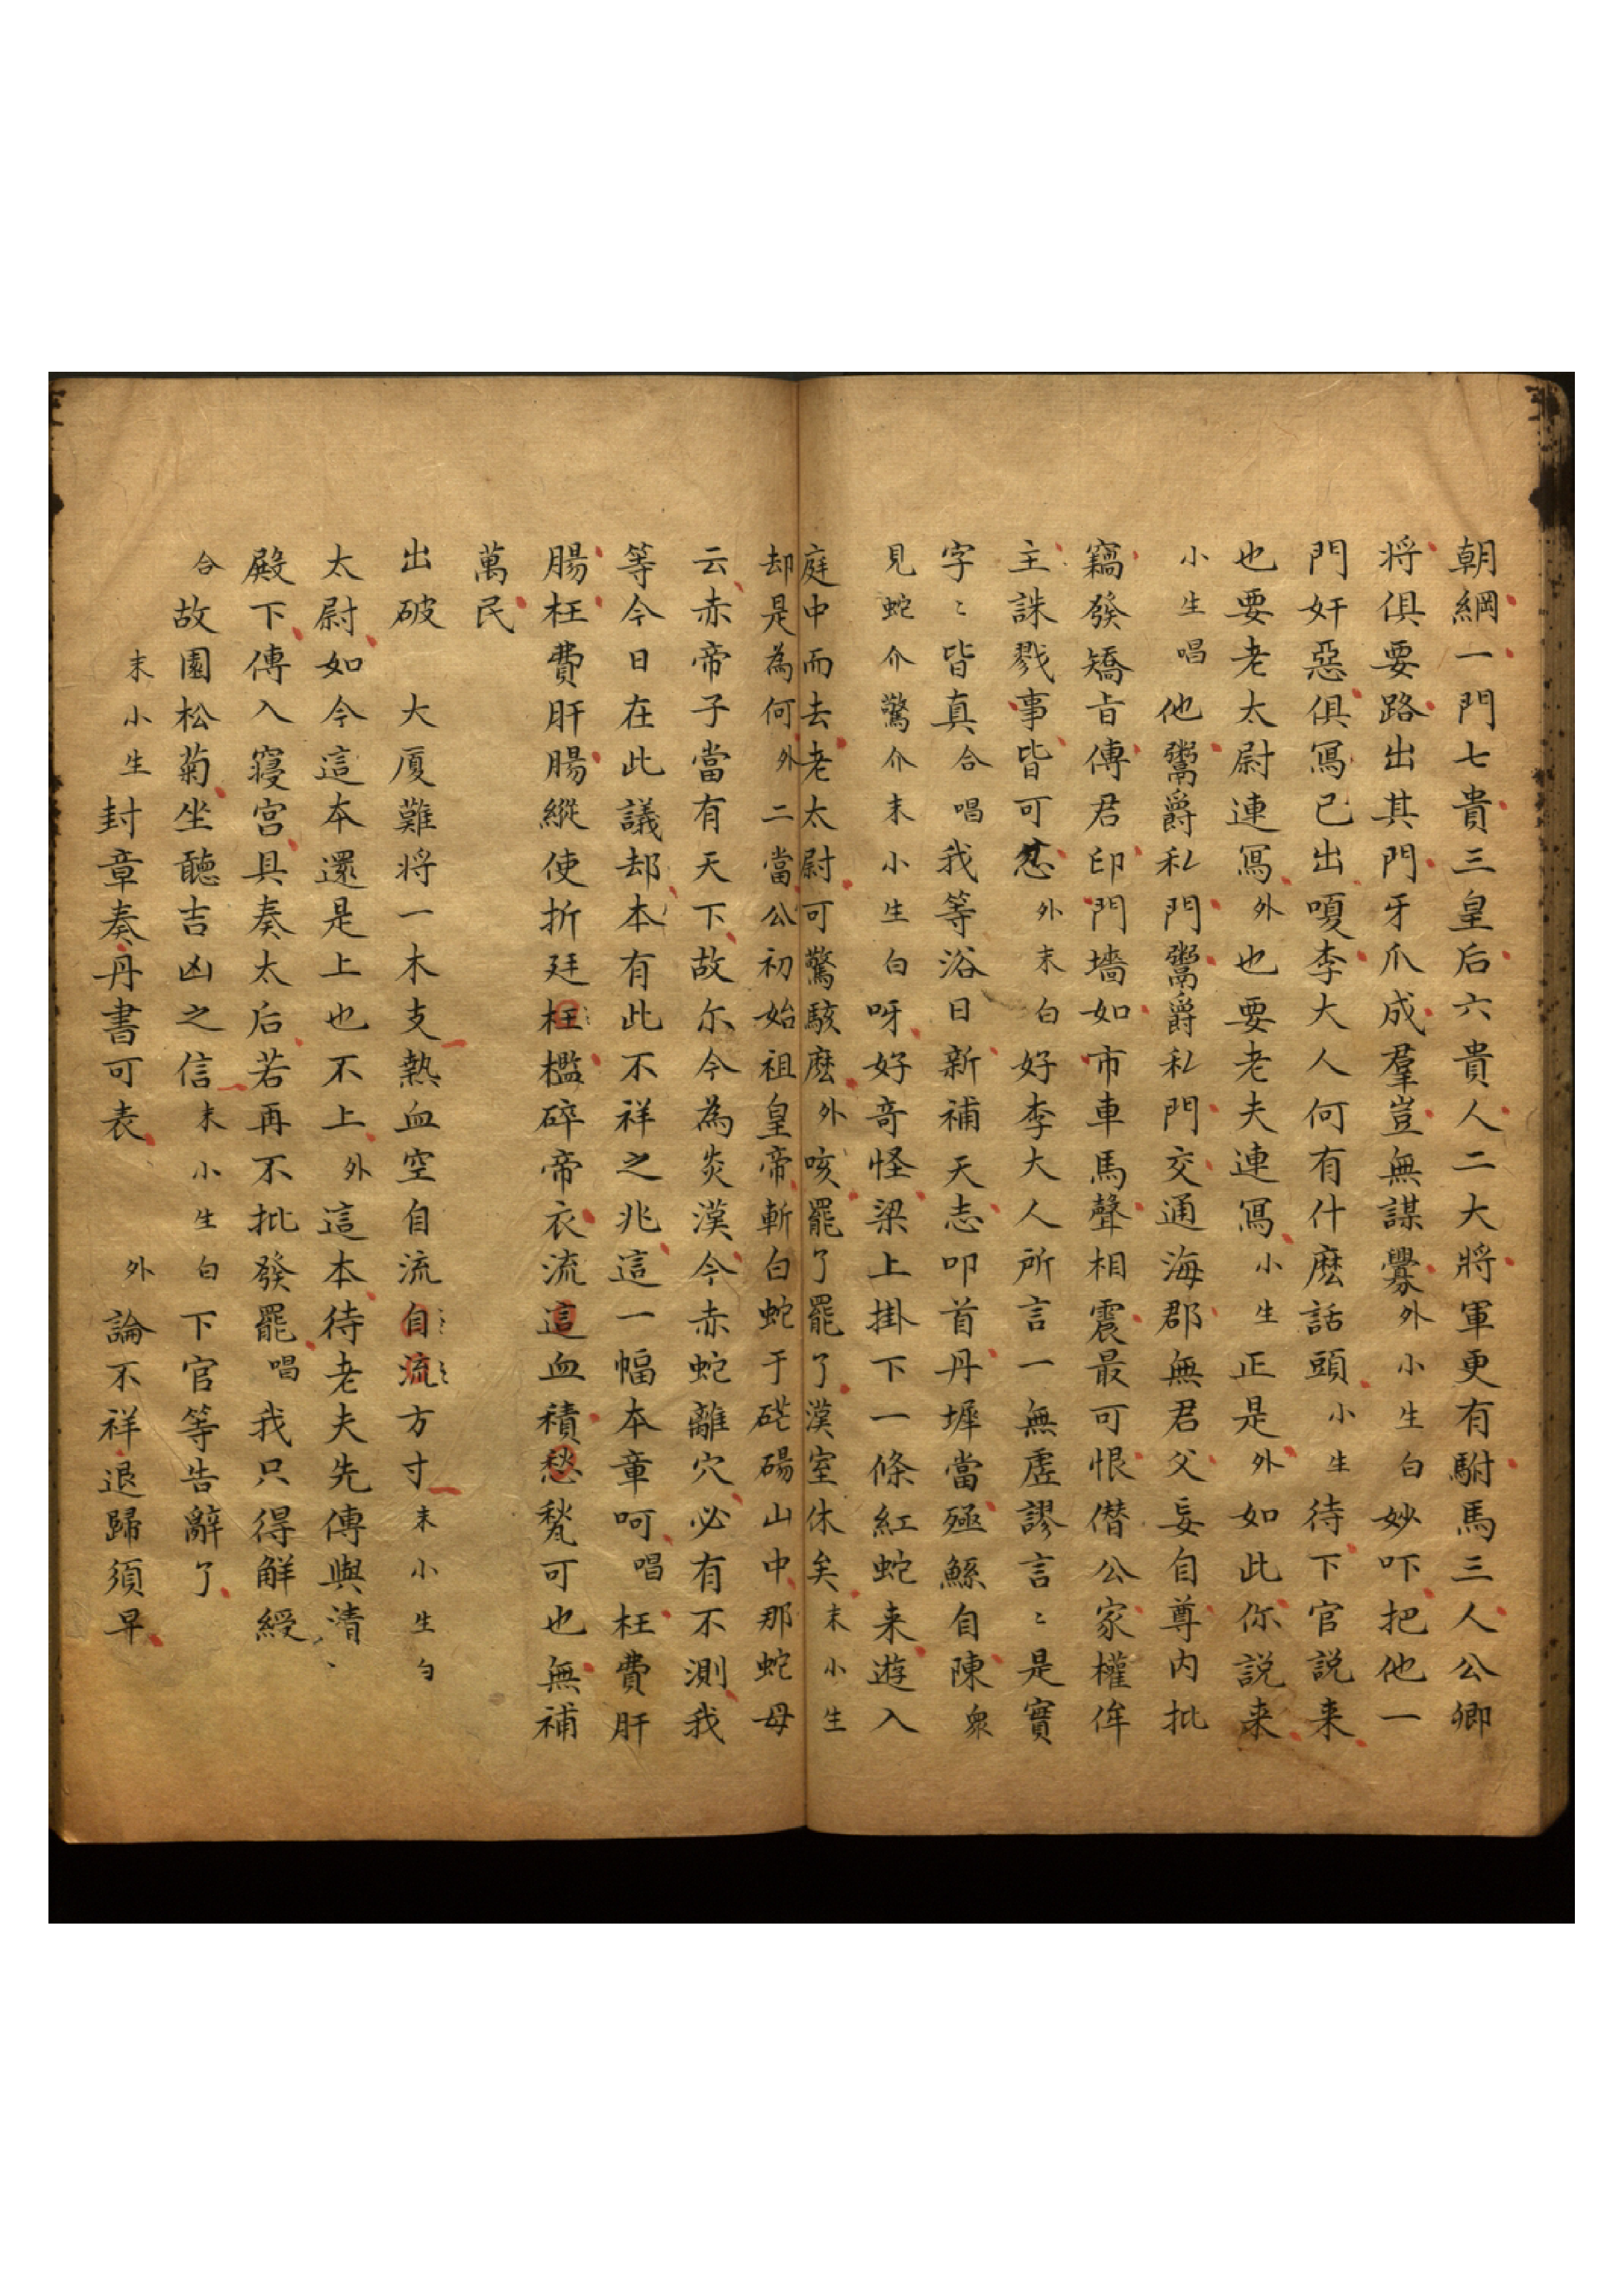 朝綱一門七貴三皇后六貴人二大將軍更有駙馬三人公卿
将俱要路出其門牙爪成羣豈無謀釁外小生白妙吓把他一
門奸惡俱寫已出嗄李大人何有什麽話頭小生待下官説来
也要老太尉連寫外也要老夫連寫小生正是外如此你説来
小生唱他鬻爵私門鬻爵私門交通海郡無君父妄自尊内批
竊發矯旨傳君印門墻如市車馬聲相震最可恨僣公家權侔
主誅戮事皆可忍外末白好李大人所言一無虚謬言〻是實
字〻皆真合唱我等浴日新補天志叩首丹墀當殛鯀自陳衆
見蛇介驚介末小生白呀好竒怪梁上掛下一條紅蛇来遊入
庭中而去老太尉可驚駭麽外咳罷了罷了漢室休矣末小生
却是為何外二當公初始祖皇帝斬白蛇于硭碭山中那蛇母
云赤帝子當有天下故尔今為炎漢今赤蛇離穴必有不測我
等今日在此議却本有此不祥之兆這一幅本章呵唱枉費肝
腸枉費肝腸縱使折廷枉檻碎帝衣流這血積愁愁可也無補
萬民
出破 大厦難将一木支熱血空自流自流方寸末小生白
太尉如今這本還是上也不上外這本待老夫先傳與清
殿下傳入寝宫具奏太后若再不批發罷唱我只得解綬
合故園松菊坐聽吉凶之信末小生白下官等告辭了
末小生封章奏丹書可表 外論不祥退歸須早